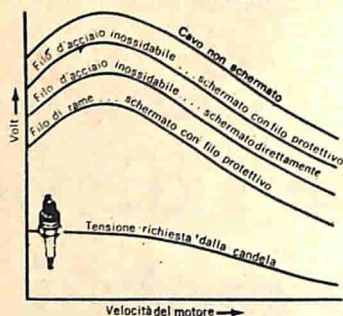 Cavo non schermato
Filo d'acciaio inossidabile ... schermato con filo protettivo
Filo d'acciaio inossidabile ... schermato direttamente
Filo di rame ... schermato con filo protettivo
Tensione richiesta dalla candela
Volt
Velocità del motore